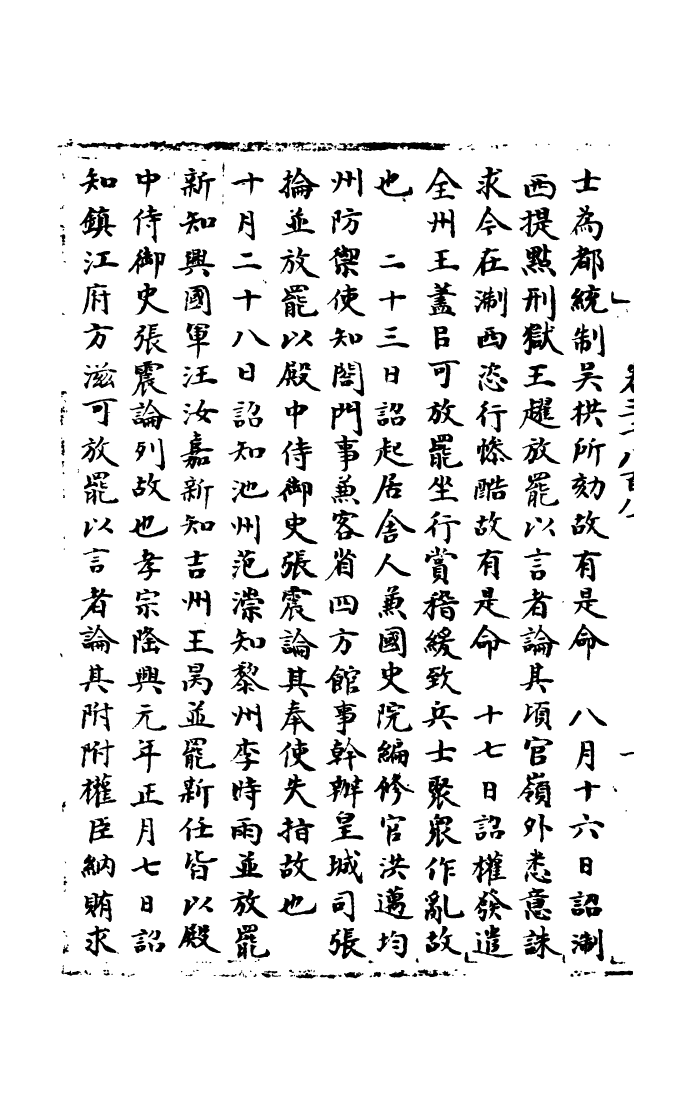 士為都統制吳拱所劾故有是命　八月十六日詔淛
西提點刑獄王趯放罷以言者論其頃官嶺外悉意誅
求今在淛西恣行慘酷故有是命　十七日詔權發遣
全州王蓋臣可放罷坐行賞稽緩致兵士聚眾作亂故
也　二十三日詔起居舍人兼國史院編修官洪邁均
州防禦使知閤門事兼客省四方館事幹辦皇城司張
掄並放罷以殿中侍御史張震論其奉使失指故也
十月二十八日詔知池州范漴知黎州李時雨並放罷
新知興國軍汪汝嘉新知吉州王曷並罷新任皆以殿
中侍御史張震論列故也孝宗隆興元年正月七日詔
知鎮江府方滋可放罷以言者論其附附權臣納賄求